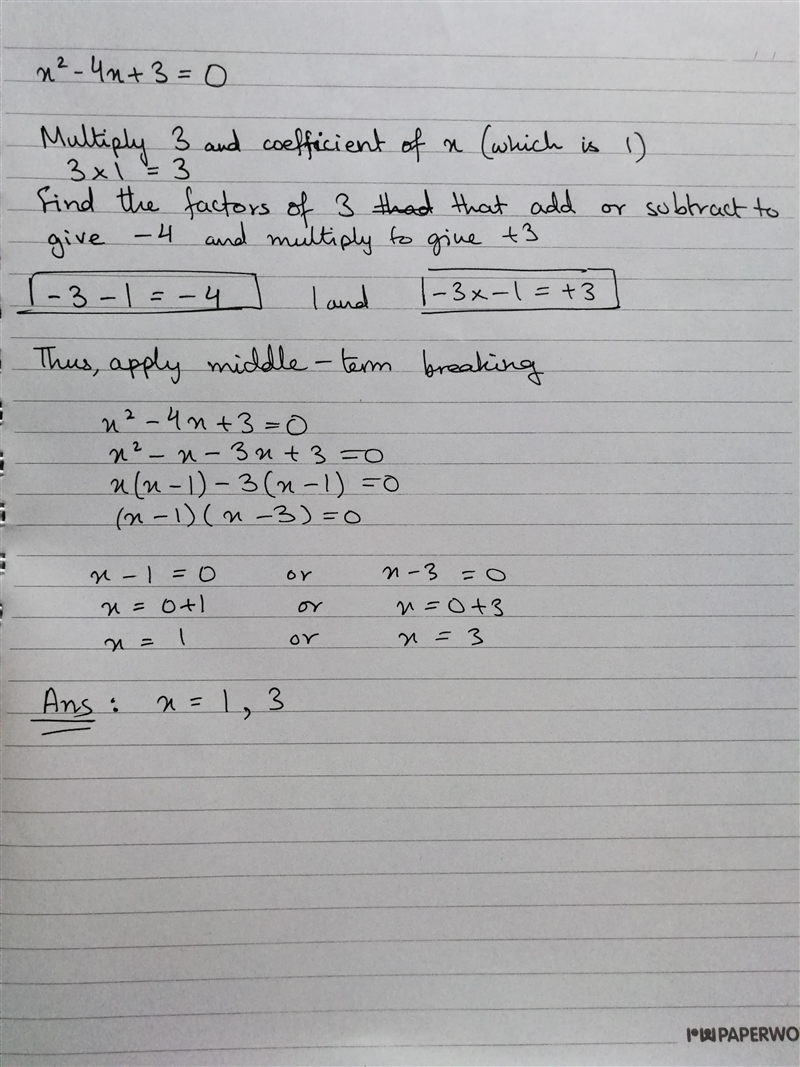 x² - 4x + 3 = 0
Multiply 3 and coefficient of x (which is 1)
3 × 1 = 3
Find the factors of 3 that add or subtract to
give -4 and multiply to give +3
-3 - 1 = -4 and -3 × -1 = +3
Thus, apply middle-term breaking
x² - 4x + 3 = 0
x² - x - 3x + 3 = 0
x(x - 1) - 3(x - 1) = 0
(x - 1)(x - 3) = 0
x - 1 = 0 or x - 3 = 0
x = 0+1 or x = 0+3
x = 1 or x = 3
Ans : x = 1, 3
PAPERWO